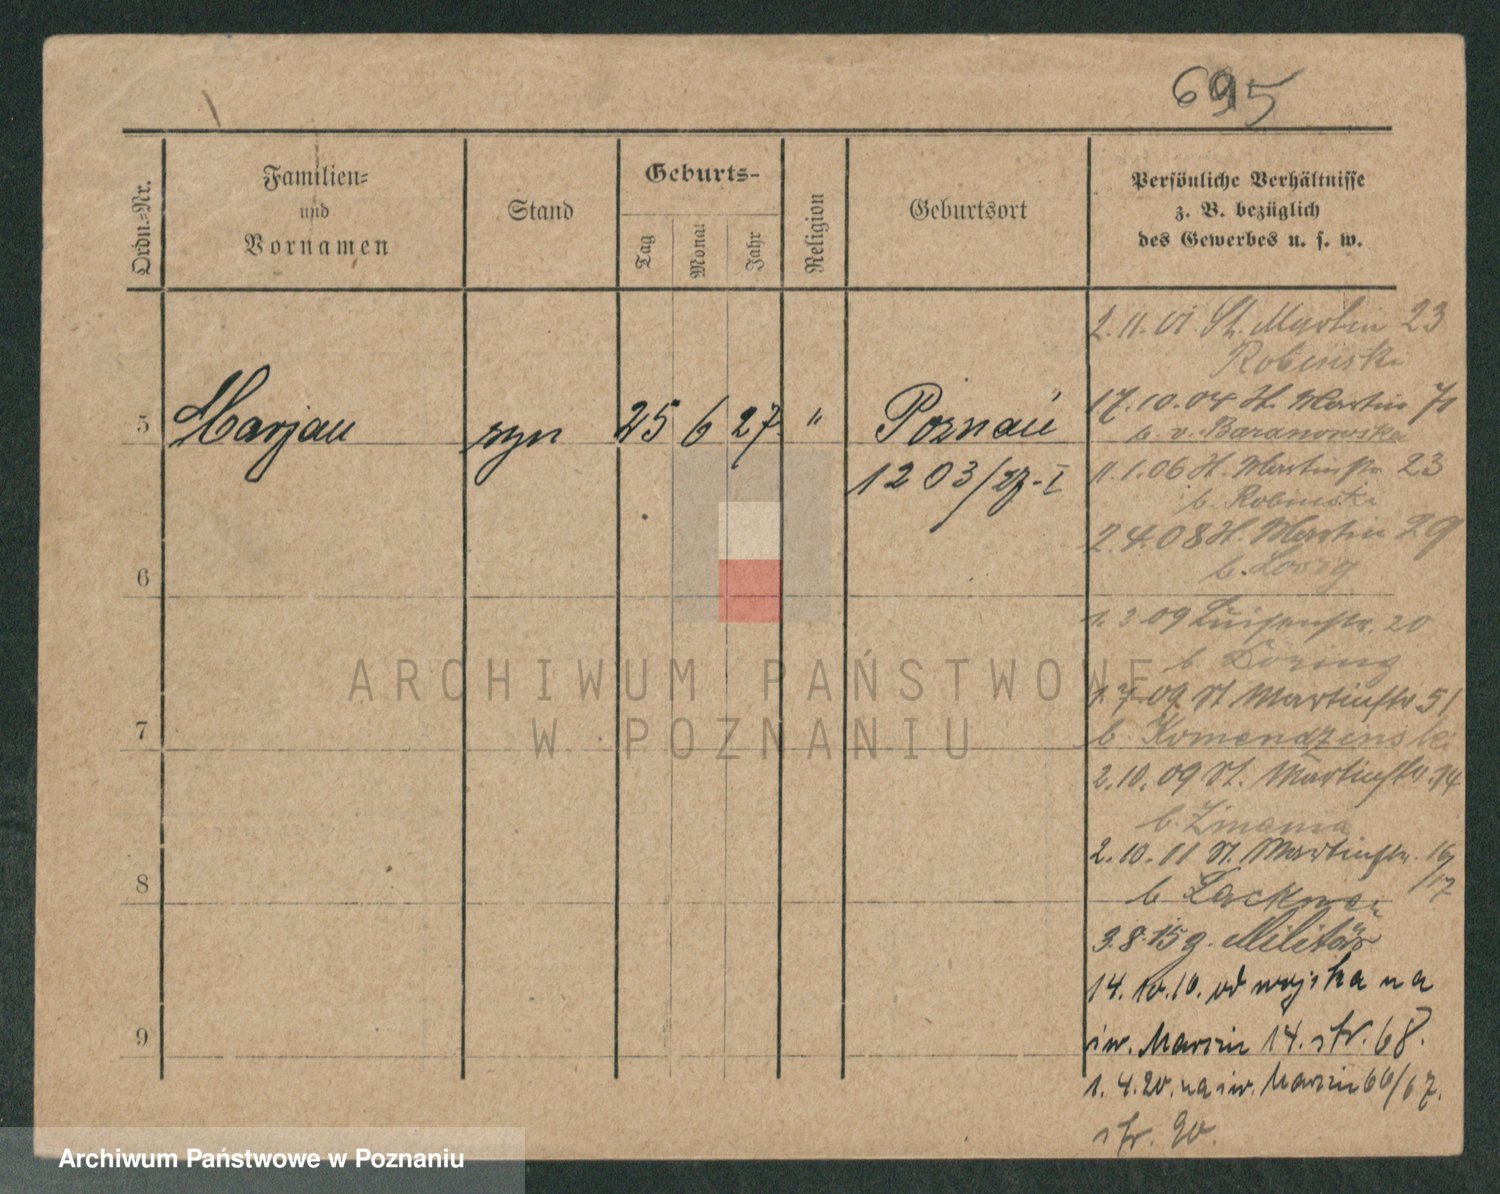 695
Ordn.=Nr.
Familien=
und
Vornamen
Stand
Geburts-
Tag
Monat
Jahr
Religion
Geburtsort
Persönliche Verhältnisse
z. B. bezüglich
des Gewerbes u. s. w.
5
Marjan
syn
25
6
27
"
Poznań
1203/27-I
6
7
8
9
2.11.01 St. Martin 23
Robinski
17.10.04 St. Martin 71
b. v. Baranowska
11.1.06 St. Martinstr. 23
b. Robinski
2.4.08 St. Martin 29
b.
Luisenstr. 20
b. Döring
1.7.09 St Martinstr. 51
b. Komendzinski
2.10.09 St. Martinstr. 34
b.
2.10.11 St. Martinstr. 16/17
b. Lackner
3.8.15 g. Militär
od wojska na
św. Marcin 14. str. 68.
1.4.20. na św. Marcin 66/67.
str. 90.
ARCHIWUM PAŃSTWOWE
W POZNANIU
Archiwum Państwowe w Poznaniu